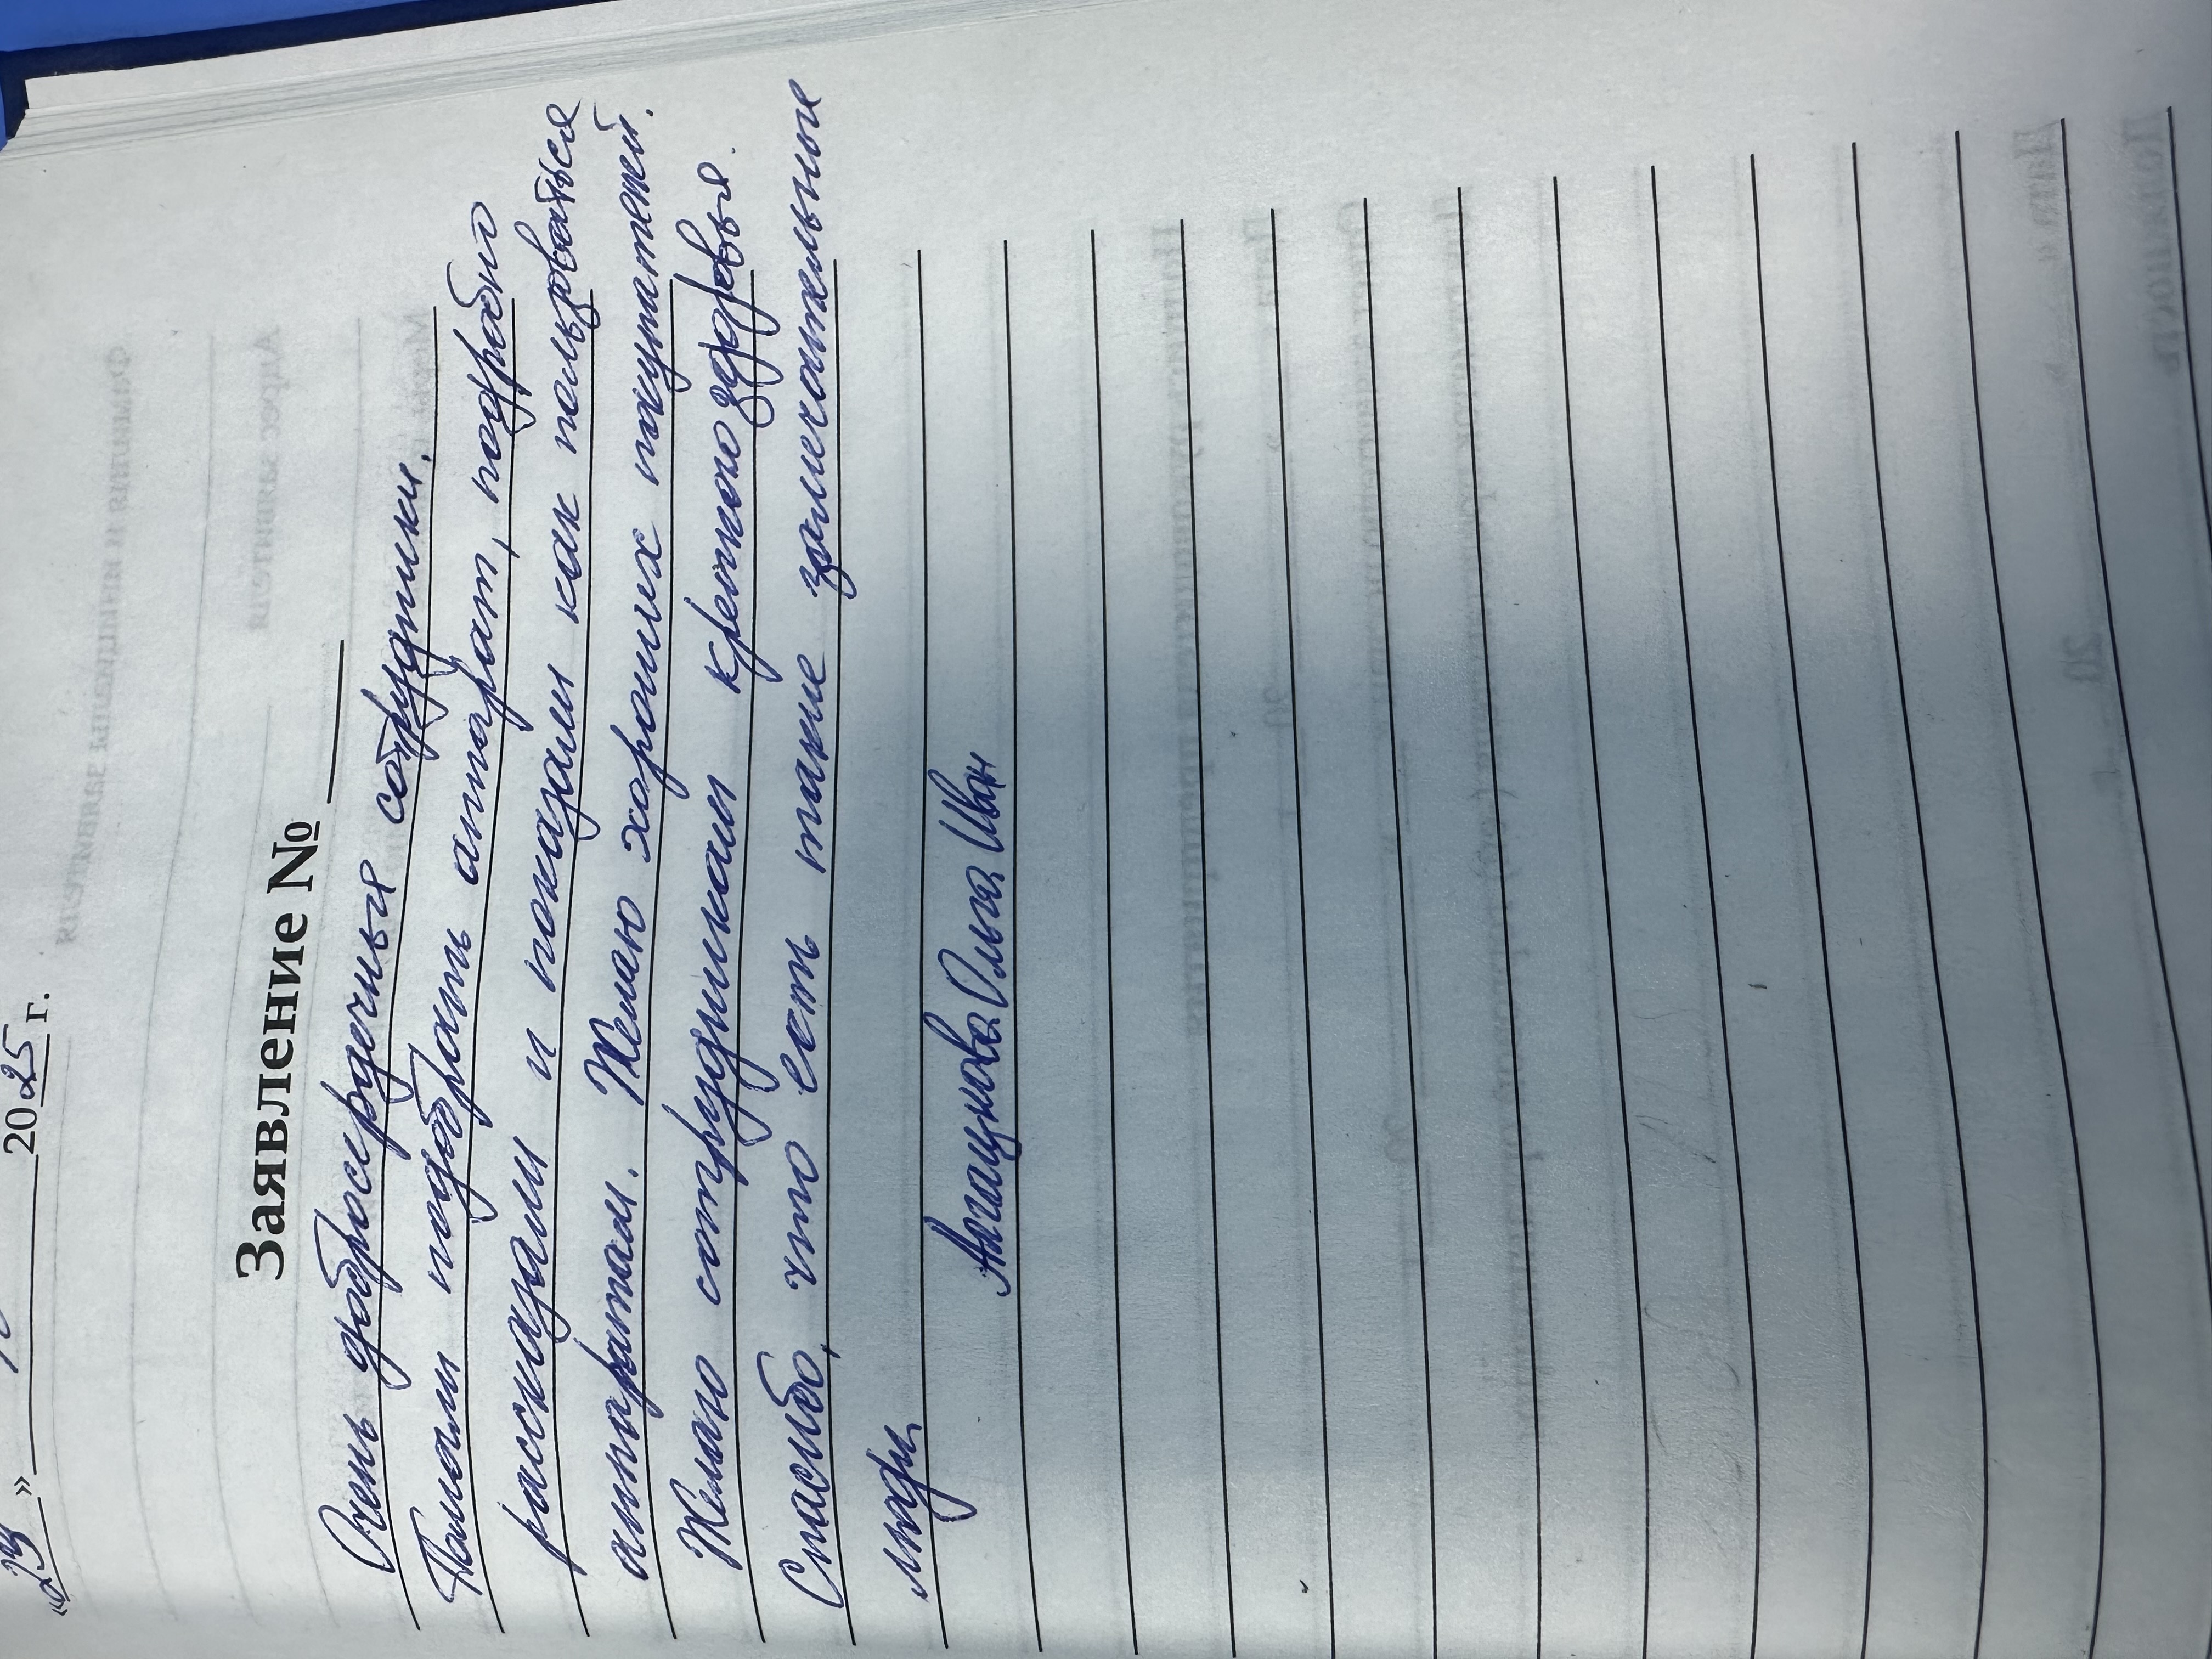 «23» 2025 г.
Заявление № ___
Очень добросердечные сотрудники.
Помогли подобрать аппарат, подробно
рассказали и показали как пользоваться
аппаратом. Желаю хороших покупателей.
Желаю сотрудникам крепкого здоровья.
Спасибо, что есть такие замечательные
люди
Ольга Иван